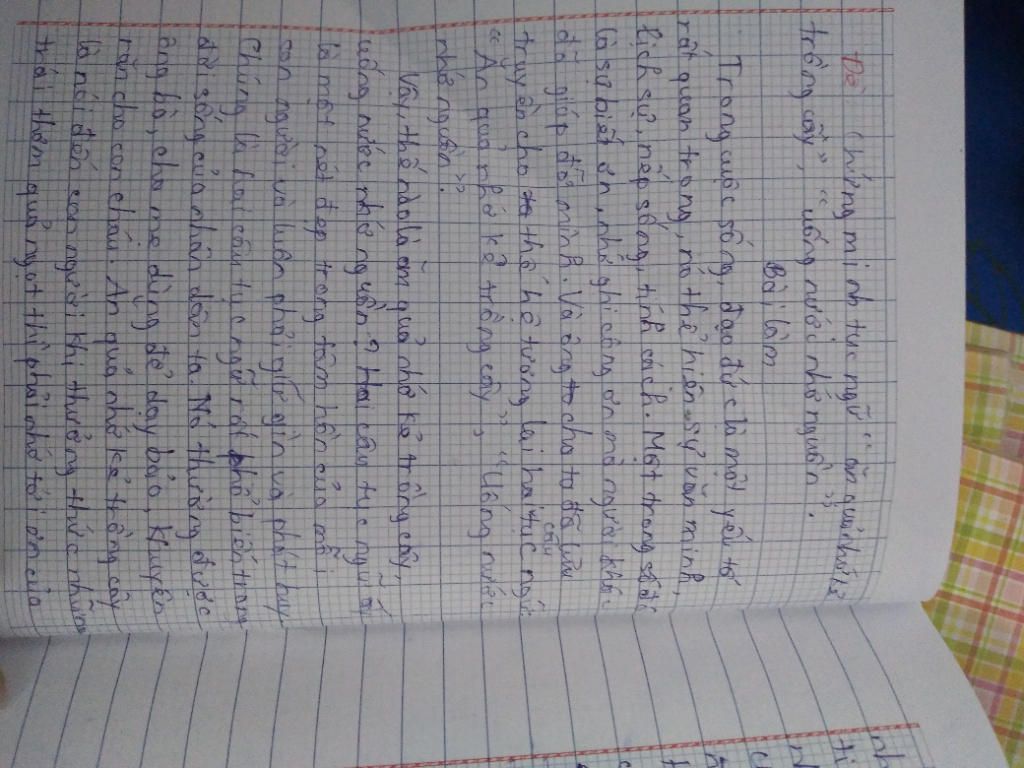 Đề: Chứng minh tục ngữ "ăn quả nhớ kẻ
trồng cây", "uống nước nhớ nguồn".
Bài làm
Trong cuộc sống, đạo đức là một yếu tố
rất quan trọng, nó thể hiện sự văn minh,
lịch sự, nếp sống, tính cách. Một trong số đó
là sự biết ơn, nhớ ghi công ơn mà người khác
đã giúp đỡ mình. Và ông cha ta đã lưu
truyền cho thế hệ tương lai hai câu tục ngữ
"Ăn quả nhớ kẻ trồng cây", "Uống nước
nhớ nguồn".
Vậy, thế nào là ăn quả nhớ kẻ trồng cây,
uống nước nhớ nguồn? Hai câu tục ngữ đó
là một nét đẹp trong tâm hồn của mỗi
con người và luôn phải giữ gìn và phát huy
Chúng là hai câu tục ngữ rất phổ biến trong
đời sống của nhân dân ta. Nó thường được
ông bà, cha mẹ dùng để dạy bảo, khuyên
răn cho con cháu. Ăn quả nhớ kẻ trồng cây
là nói đến con người khi thưởng thức những
trái thơm quả ngọt thì phải nhớ tới ơn của